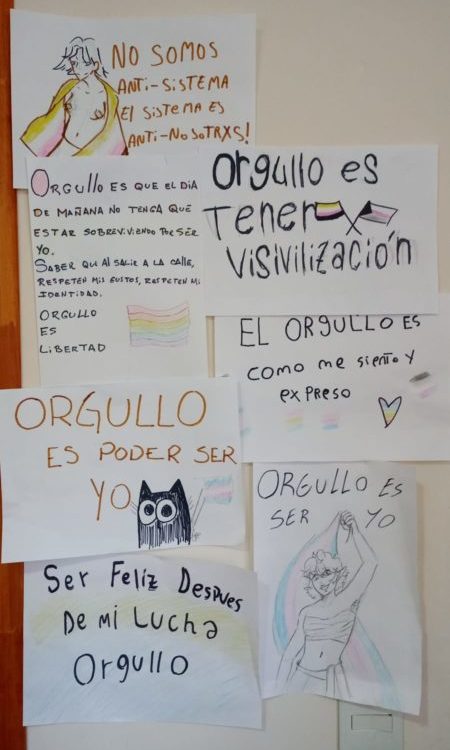 NO SOMOS
ANTI-SISTEMA
El SISTEMA ES
ANTI-NOSOTRXS!
ORGUllO ES QUE EL DIA
DE MAÑANA NO TENGA QUE
ESTAR SOBREVIVIENDO POR SER
YO.
SABER QU AL SALIR A LA CALLE,
RESPETEN MIS GUSTOS, RESPETEN MI
IDENTIDAD.
ORGULLO
ES
LIBERTAD
Orgullo es
Tener
VISIVILIZACIÓN
EL ORGULLO ES
como me siento y
expreso
ORGULLO
ES PODER SER
YO
ORGULLO ES
SER YO
Ser Feliz Despues
De mi Lucha
Orgullo